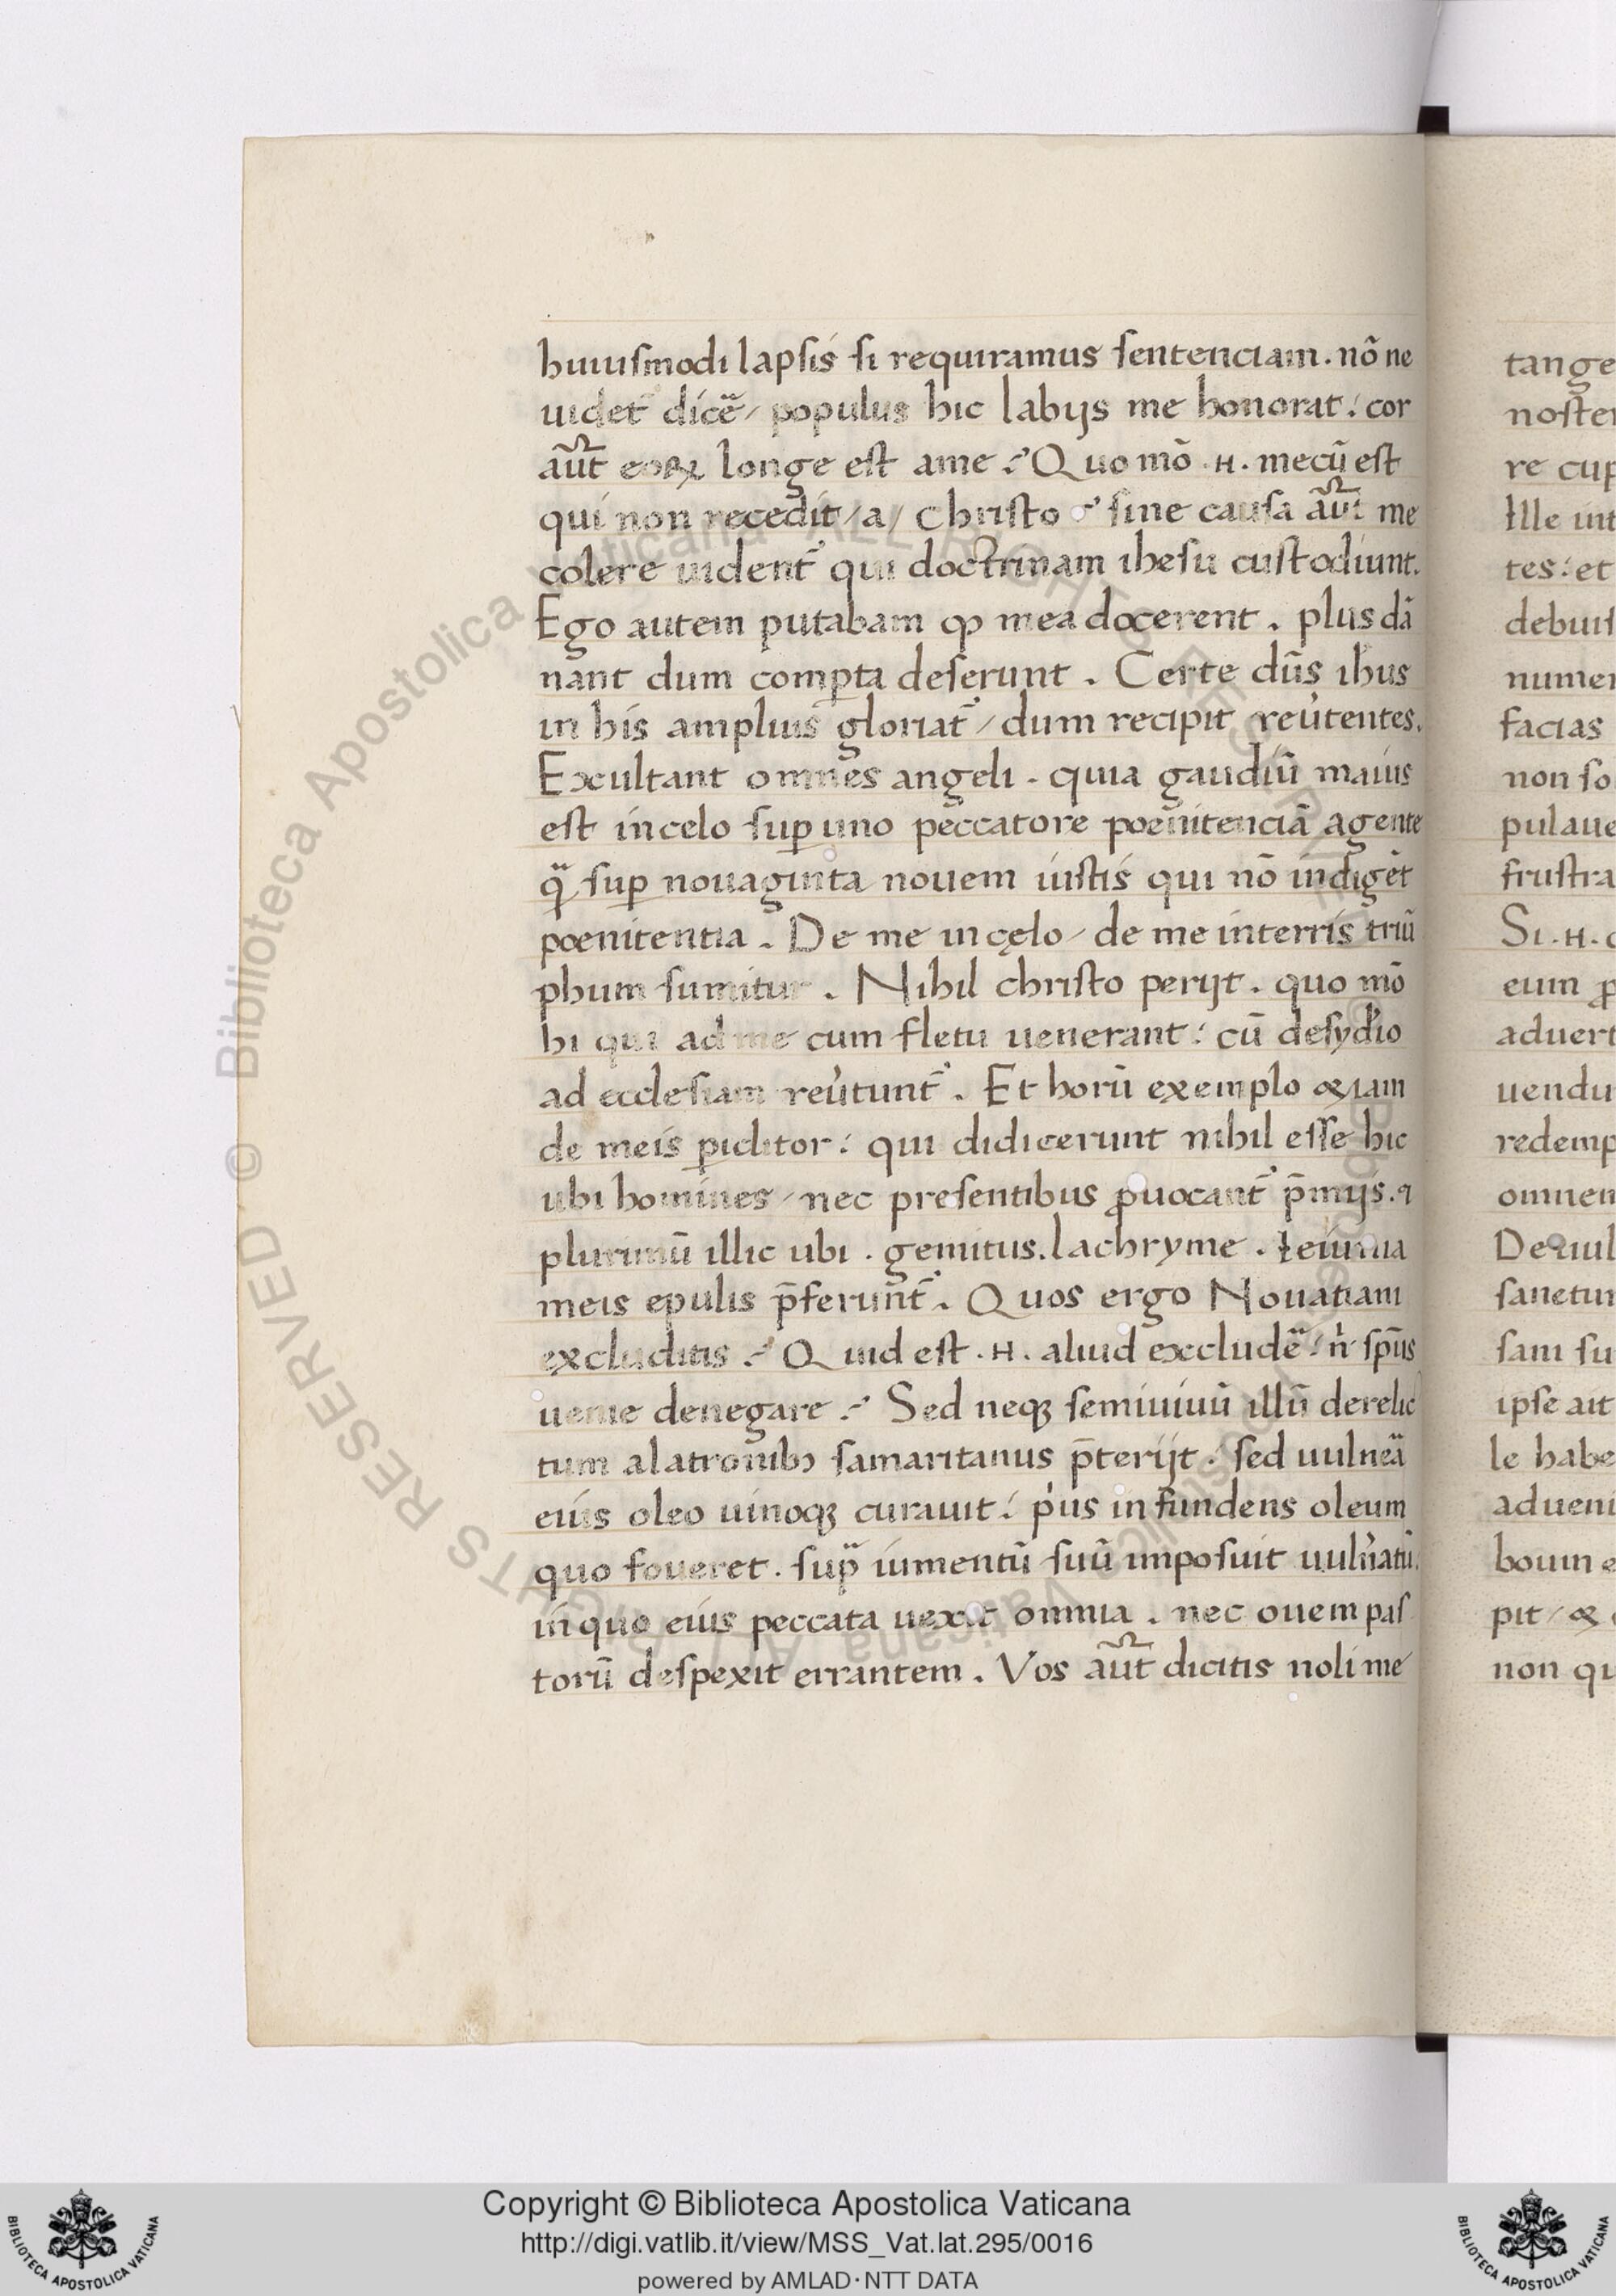 huiusmodi lapsis si requiramus sentenciam. nõ ne
uidet᷑ dicē / populus hic labijs me honorat: cor
aũt eoꝝ longe est ame? Quo mõ .H. mecũ est
qui non recedit /a/ christo? sine causa aũt me
colere uident᷑ qui doctrinam ihesu custodiunt.
Ego autem putabam ꝙ mea docerent. plus dã
nant dum comꝑta deserunt. Certe dñs ihus
in his amplius gloriat᷑ / dum recipit reu᷑tentes.
Excultant omnes angeli. quia gaudiũ maius
est in celo suꝑ uno peccatore poenitenciã agente
ꝗ̃ suꝑ nouaginta nouem iustis qui nõ indigẽt
poenitentia. De me in cęlo / de me interris triũ
phum sumitur. Nihil christo perijt. quo mõ
hi qui ad me cum fletu uenerant: cũ desyd᷑io
ad ecclesiam reu᷑tunt᷑. Et horũ exemplo & iam
de meis ꝑiclitor: qui didicerunt nihil esse hic
ubi homines / nec presentibus ꝓuocant᷑ p̃mijs. ⁊
plurimũ illic ubi. gemitus. lachryme. Ieiunia
meis epulis p̃ferunt᷑. Quos ergo Nouatiani
excluditis? Quid est .H. aliud excludē: n᷑ sp̃us
uenie denegare? Sed neqꝫ semiuiuũ illũ derelic
tum alatronibꝰ samaritanus p̃terijt: sed uulnẽa
eius oleo uinoqꝫ curauit: p᷑us infundens oleum
quo foueret. sup̃ iumentũ suũ imposuit uuln᷑atũ.
in quo eius peccata uexit omnia. nec ouem pas
torũ despexit errantem. Vos aũt dicitis noli me
tange
noster
re cup
Ille int
tes: et
debuis
numer
facias
non so
pulaue
frustra
Si .H. c
eum ꝓ
aduert
uendu
redemp
omnem
De uul
sanetur
sam su
ipse ait
le habe
adueni
bouin e
pit / & c
non qu
© Biblioteca Apostolica Vaticana ALL RIGHTS RESERVED
Copyright © Biblioteca Apostolica Vaticana
http://digi.vatlib.it/view/MSS_Vat.lat.295/0016
powered by AMLAD·NTT DATA
BIBLIOTECA APOSTOLICA VATICANA
BIBLIOTECA APOSTOLICA VATICANA